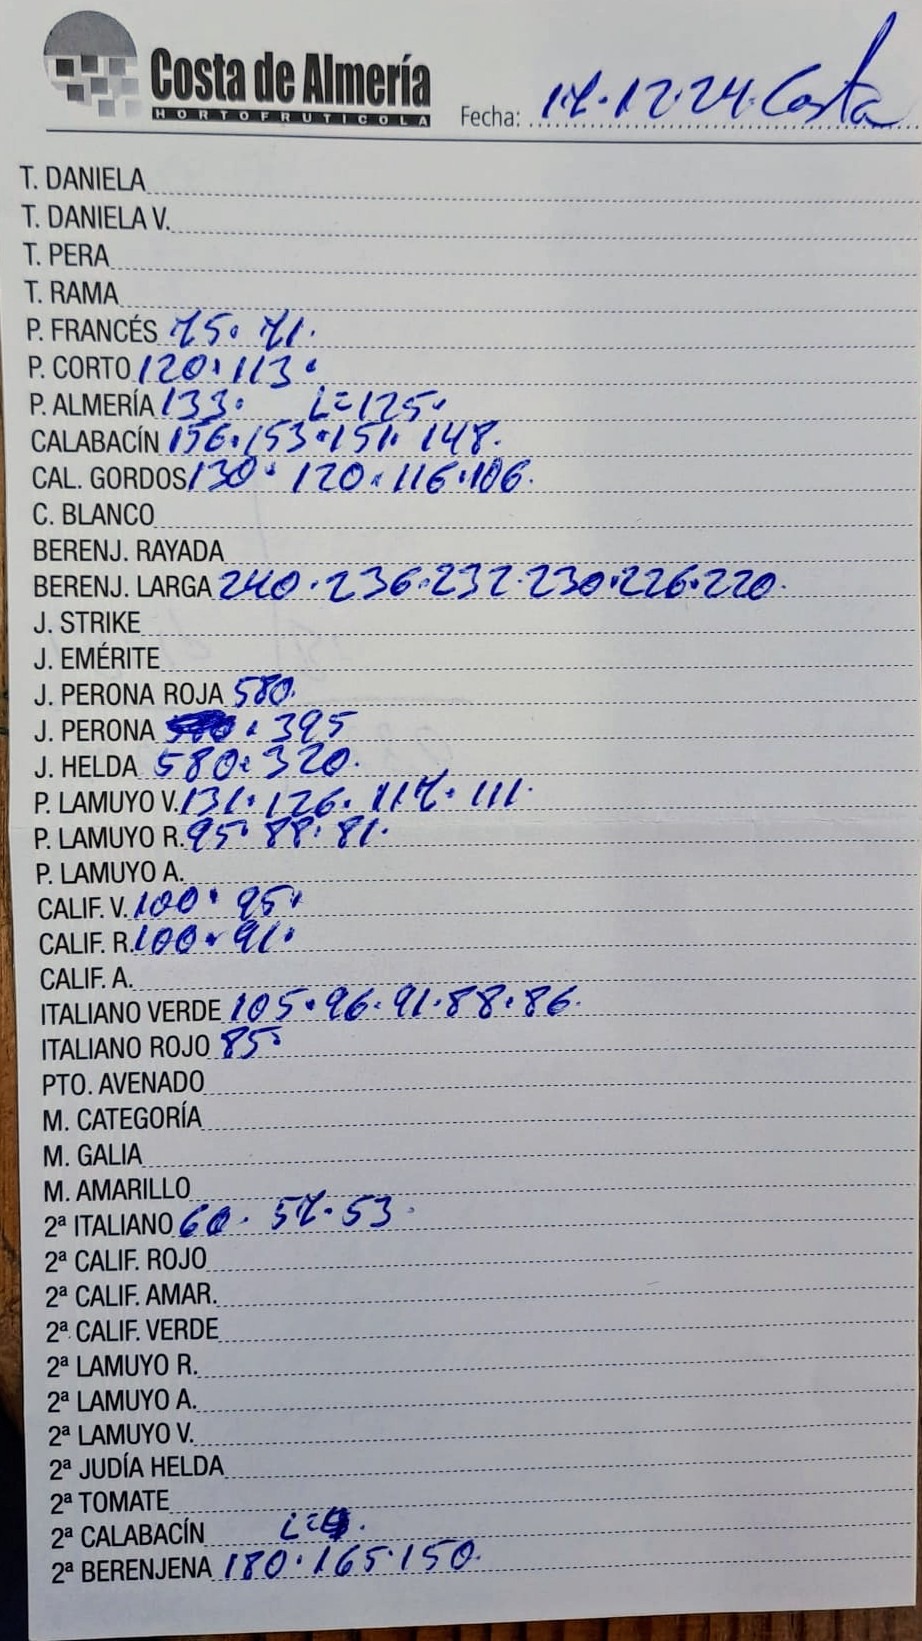 Costa de Almería
HORTOFRUTICOLA
Fecha: 17.12.24. Costa
T. DANIELA
T. DANIELA V.
T. PERA
T. RAMA
P. FRANCÉS 75. 71.
P. CORTO 120. 113.
P. ALMERÍA 133. L=125.
CALABACÍN 156. 153. 151. 148.
CAL. GORDOS 130. 120. 116. 106.
C. BLANCO
BERENJ. RAYADA
BERENJ. LARGA 240. 236. 232. 230. 226. 220.
J. STRIKE
J. EMÉRITE
J. PERONA ROJA 580.
J. PERONA . 395
J. HELDA 580. 320.
P. LAMUYO V. 131. 126. 117. 111.
P. LAMUYO R. 95. 88. 81.
P. LAMUYO A.
CALIF. V. 100. 95.
CALIF. R. 100. 91.
CALIF. A.
ITALIANO VERDE 105. 96. 91. 88. 86.
ITALIANO ROJO 85.
PTO. AVENADO
M. CATEGORÍA
M. GALIA
M. AMARILLO
2ª ITALIANO 60. 57. 53.
2ª CALIF. ROJO
2ª CALIF. AMAR.
2ª CALIF. VERDE
2ª LAMUYO R.
2ª LAMUYO A.
2ª LAMUYO V.
2ª JUDÍA HELDA
2ª TOMATE
2ª CALABACÍN
2ª BERENJENA 180. 165. 150.